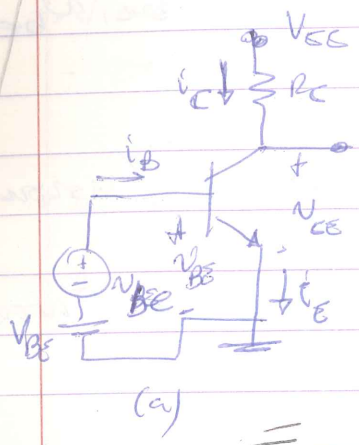 V_EE
i_C R_C
i_B
+
+ v_CE
+
-
v_BE
v_be
-
i_E
V_BE
(a)